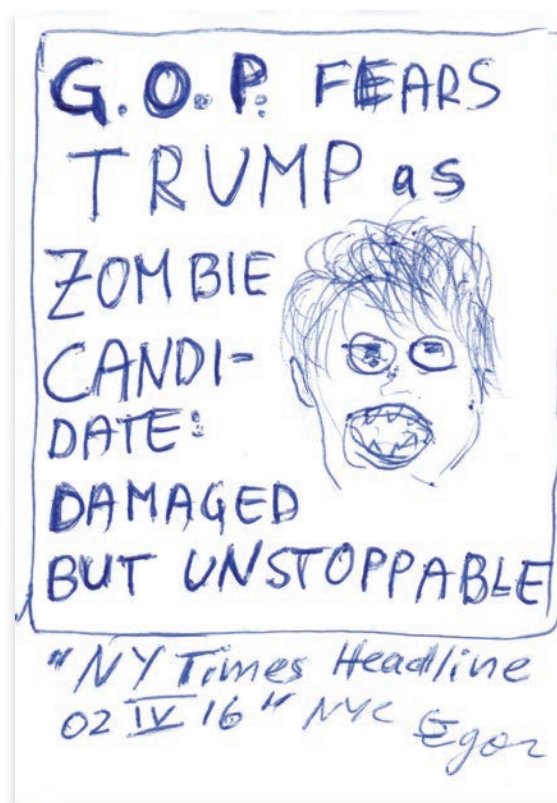 G.O.P. FEARS
TRUMP as
ZOMBIE
CANDI-
DATE:
DAMAGED
BUT UNSTOPPABLE
"NY Times Headline
02 IV 16" NYC Egor